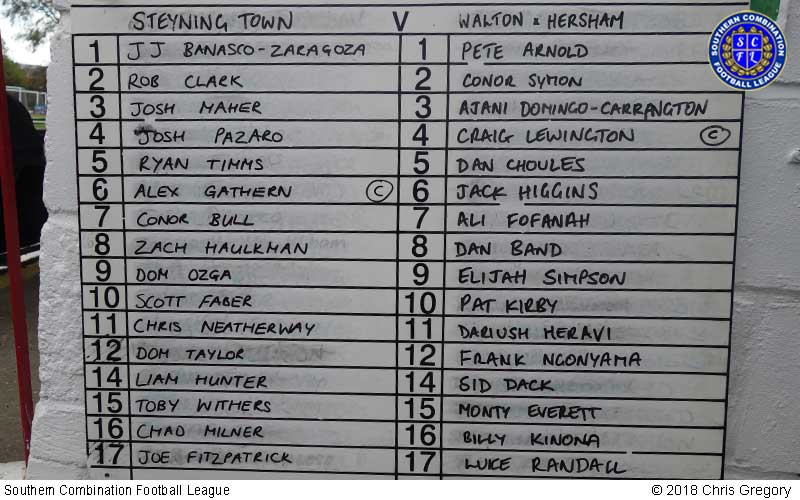 STEYNING TOWN V WALTON & HERSHAM
1 JJ BANASCO-ZARAGOZA 1 PETE ARNOLD
2 ROB CLARK 2 CONOR SYMON
3 JOSH MAHER 3 AJANI DOMINGO-CARRANGTON
4 JOSH PAZARO 4 CRAIG LEWINGTON C
5 RYAN TIMMS 5 DAN CHOULES
6 ALEX GATHERN C 6 JACK HIGGINS
7 CONOR BULL 7 ALI FOFANAH
8 ZACH HAULKMAN 8 DAN BAND
9 DOM OZGA 9 ELIJAH SIMPSON
10 SCOTT FABER 10 PAT KIRBY
11 CHRIS NEATHERWAY 11 DARIUSH HERAVI
12 DOM TAYLOR 12 FRANK NGONYAMA
14 LIAM HUNTER 14 SID DACK
15 TOBY WITHERS 15 MONTY EVERETT
16 CHAD MILNER 16 BILLY KINONA
17 JOE FITZPATRICK 17 LUKE RANDALL
SOUTHERN COMBINATION
SCFL
FOOTBALL LEAGUE
Southern Combination Football League © 2018 Chris Gregory